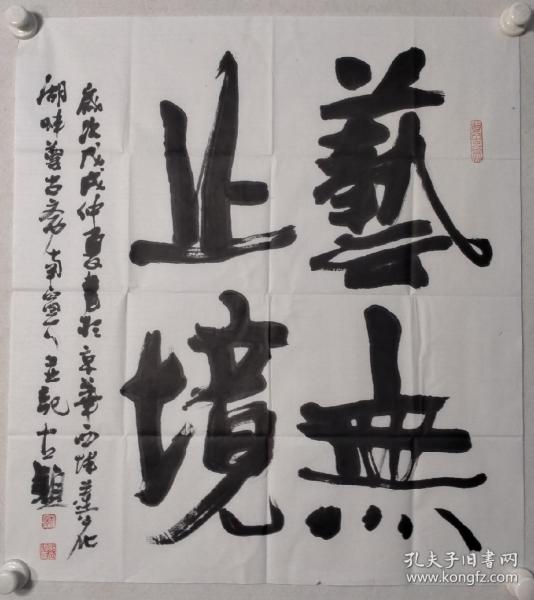 藝無
止境
歲次戊戌仲夏書於京華西城蓮花
湖畔尊古齋南窗 並記
孔夫子旧书网
www.kongfz.com